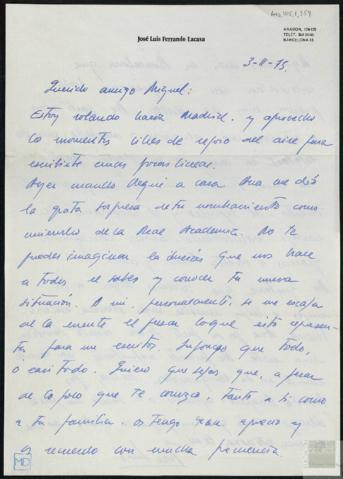 José Luis Ferrando Lacasa
ARAGON,
BARCELONA
3-II-75.
Querido amigo Miguel:
Estoy volando hacia Madrid. y aprovecho
los momentos libres de reposo del aire para
escribirte unas pocas líneas.
Ayer cuando llegué a casa Ana me dió
la grata sorpresa de tu nombramiento como
miembro de la Real Academia. No te
puedes imaginar la ilusión que nos hace
a todos el saber y conocer tu nueva
situación. A mi, personalmente, se me escapa
de la mente el pensar lo que ésto represen-
ta para un escritor. Supongo que todo,
o casi todo. Quiero que sepas que, a pesar
de lo poco que te conozco, tanto a ti como
a tu familia, os tengo gran aprecio y
os recuerdo con mucha frecuencia.
MD